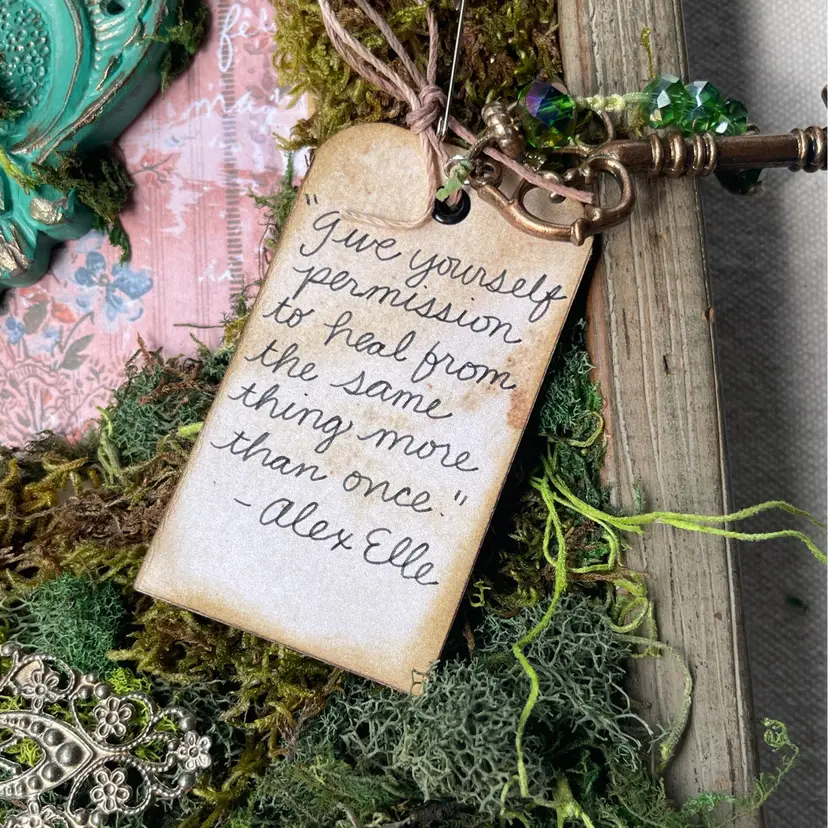 "Give yourself
permission
to heal from
the same
thing more
than once."
- Alex Elle